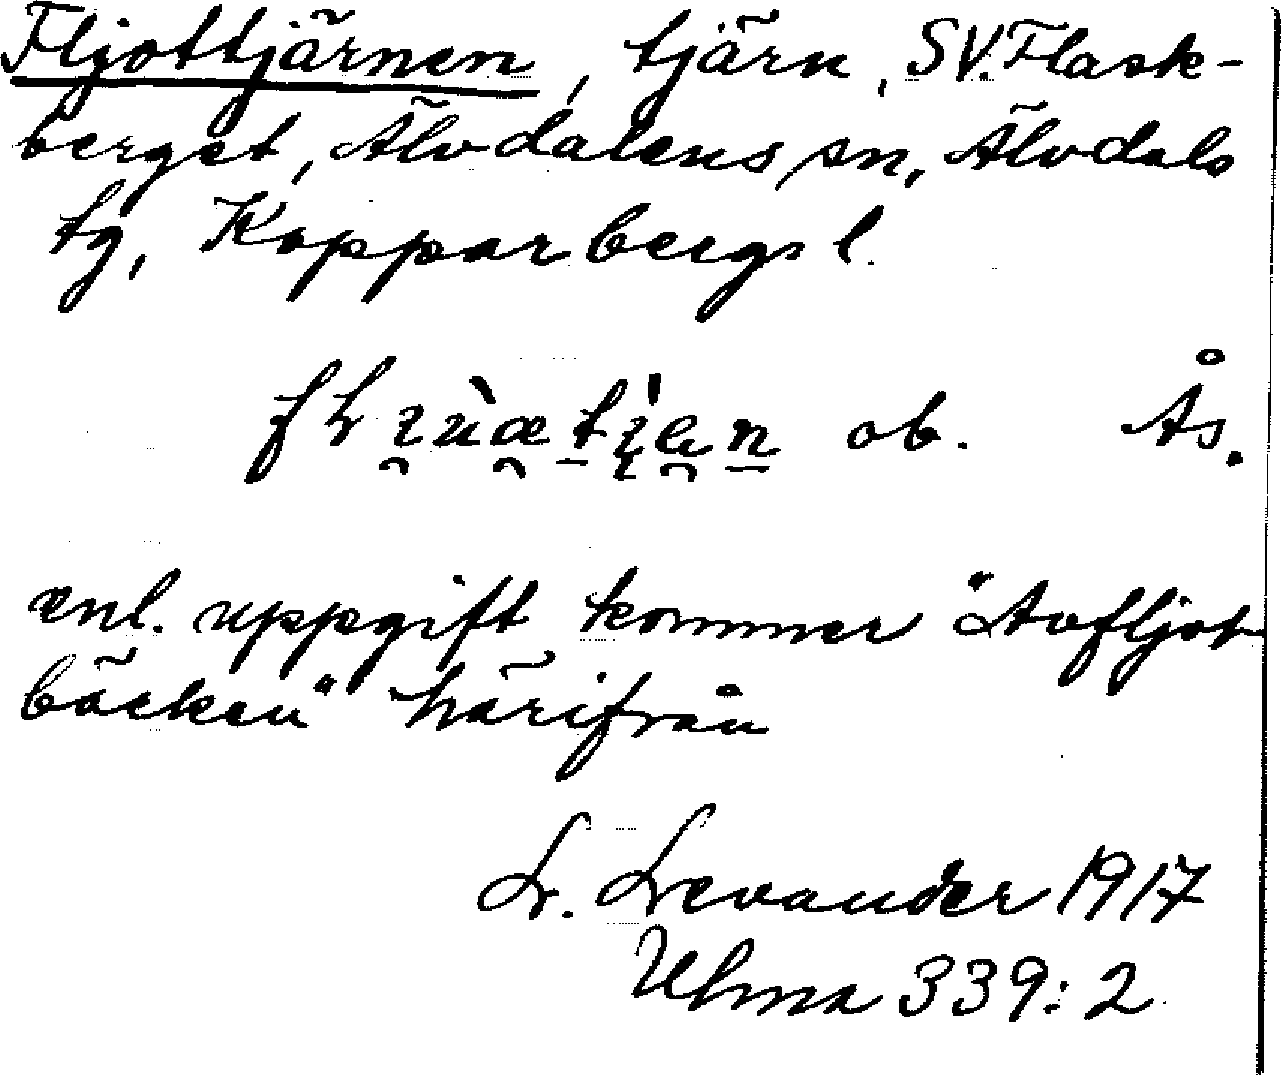 Fljottjärnen, tjärn, SV. Flask-
berget, Älvdalens sn, Älvdals
tg, Kopparbergs l.
ob. Ås.
enl. uppgift kommer "Avfljot-
bäcken" härifrån
L. Levander 1917
Ulma 339:2